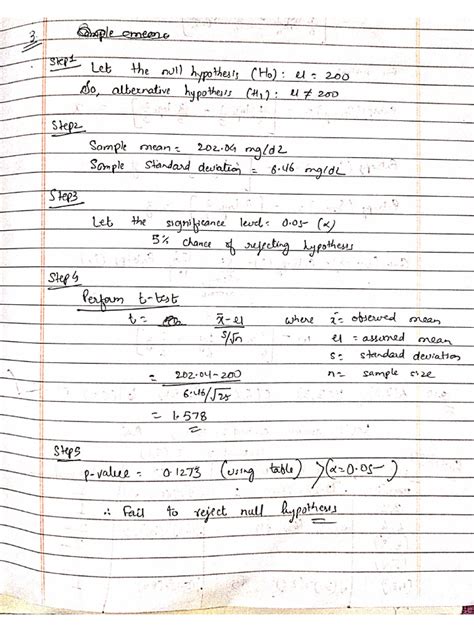 3. Sample mean
Step1 Let the null hypothesis (H₀): μ = 200
So, alternative hypothesis (H₁): μ ≠ 200
Step2
Sample mean = 202.04 mg/dL
Sample Standard deviation = 6.46 mg/dL
Step3
Let the significance level = 0.05 (α)
5% chance of rejecting hypothesis
Step 4
Perform t-test
t = x̄-μ / s/√n where x̄ = observed mean
μ = assumed mean
s = standard deviation
n = sample size
= 202.04-200 / 6.46/√25
= 1.578
Step5
p-value = 0.1273 (using table) > (α=0.05)
∴ Fail to reject null hypothesis